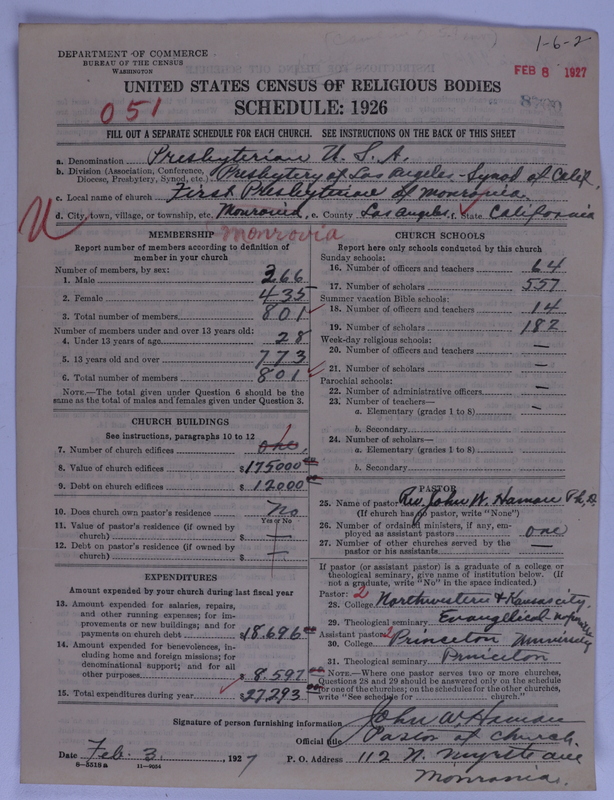 1-6-2
DEPARTMENT OF COMMERCE
BUREAU OF THE CENSUS
WASHINGTON
FEB 8 1927
UNITED STATES CENSUS OF RELIGIOUS BODIES
051
SCHEDULE: 1926
FILL OUT A SEPARATE SCHEDULE FOR EACH CHURCH. SEE INSTRUCTIONS ON THE BACK OF THIS SHEET
a. Denomination Presbyterian U.S.A.
b. Division (Association, Conference, Diocese, Presbytery, Synod, etc.) Presbytery of Los Angeles - Synod of Calif.
c. Local name of church First Presbyterian of Monrovia.
d. City, town, village, or township, etc. Monrovia, e. County Los Angeles f. State California
U
Monrovia
MEMBERSHIP
Report number of members according to definition of member in your church
Number of members, by sex:
1. Male 366
2. Female 435
3. Total number of members 801
Number of members under and over 13 years old:
4. Under 13 years of age 28
5. 13 years old and over 773
6. Total number of members 801
NOTE.—The total given under Question 6 should be same as the total of males and females given under Question 3.
CHURCH BUILDINGS
See instructions, paragraphs 10 to 12
7. Number of church edifices one.
8. Value of church edifices $175000
9. Debt on church edifices $12000
10. Does church own pastor's residence No
Yes or No
11. Value of pastor's residence (if owned by church) $ —
12. Debt on pastor's residence (if owned by church) $ —
EXPENDITURES
Amount expended by your church during last fiscal year
13. Amount expended for salaries, repairs, and other running expenses; for improvements or new buildings; and for payments on church debt $18.696
14. Amount expended for benevolences, including home and foreign missions; for denominational support; and for all other purposes $8.597
15. Total expenditures during year $27293
CHURCH SCHOOLS
Report here only schools conducted by this church
Sunday schools:
16. Number of officers and teachers 64
17. Number of scholars 557
Summer vacation Bible schools:
18. Number of officers and teachers 14
19. Number of scholars 182
Week-day religious schools:
20. Number of officers and teachers —
21. Number of scholars —
Parochial schools:
22. Number of administrative officers —
23. Number of teachers—
a. Elementary (grades 1 to 8) —
b. Secondary
24. Number of scholars—
a. Elementary (grades 1 to 8)
b. Secondary
PASTOR
25. Name of pastor Rev. John W. Haman Ph.D.
(If church has no pastor, write "None")
26. Number of ordained ministers, if any, employed as assistant pastors one
27. Number of other churches served by the pastor or his assistants —
If pastor (or assistant pastor) is a graduate of a college or theological seminary, give name of institution below. (If not a graduate, write "No" in the space indicated.)
Pastor: 2
28. College Northwestern & Kansas City,
29. Theological seminary Evangelical
Assistant pastor: 2
30. College Princeton University
31. Theological seminary Princeton
NOTE.—Where one pastor serves two or more churches, Questions 28 and 29 should be answered only on the schedule for one of the churches; on the schedules for the other churches, write "See schedule for church."
Signature of person furnishing information John W. Haman
Official title Pastor of church.
Date Feb. 3, 1927 P. O. Address 112 N. Myrtle ave
8-5518a 11-9034
Monrovia.